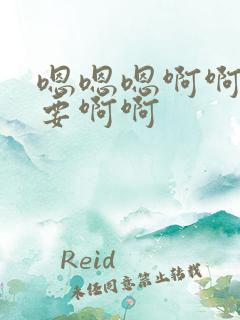 嗯嗯嗯啊啊
要啊啊
Reid
未经同意禁止转载